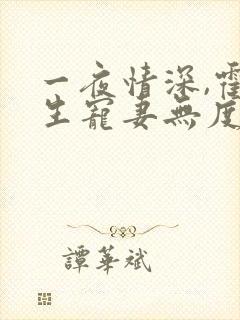 一夜情深,霍
生寵妻無度
譚華斌